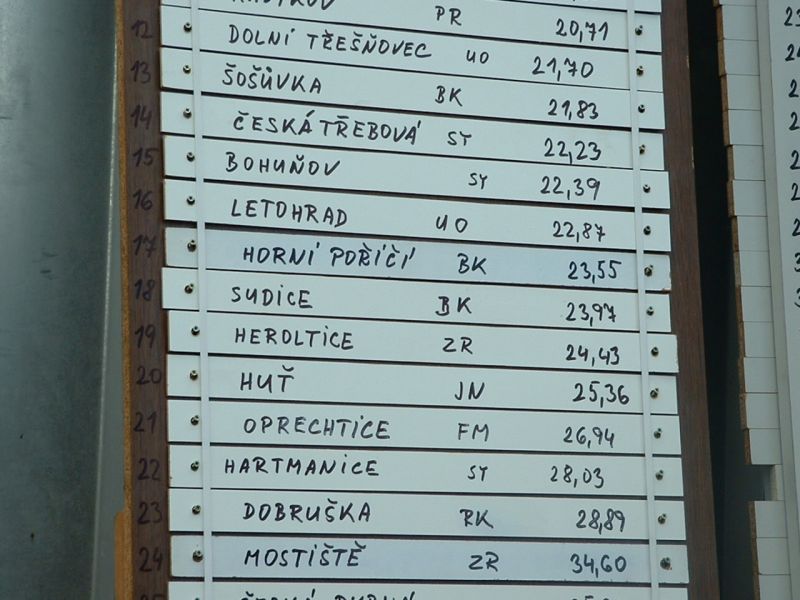 PR 20,71
12 DOLNÍ TŘEŠŇOVEC UO 21,70
13 ŠOŠŮVKA BK 21,83
14 ČESKÁ TŘEBOVÁ SY 22,23
15 BOHUŇOV SY 22,39
16 LETOHRAD UO 22,87
17 HORNÍ POŘÍČÍ BK 23,55
18 SUDICE BK 23,97
19 HEROLTICE ZR 24,43
20 HUŤ JN 25,36
21 OPRECHTICE FM 26,94
22 HARTMANICE SY 28,03
23 DOBRUŠKA RK 28,89
24 MOSTIŠTĚ ZR 34,60